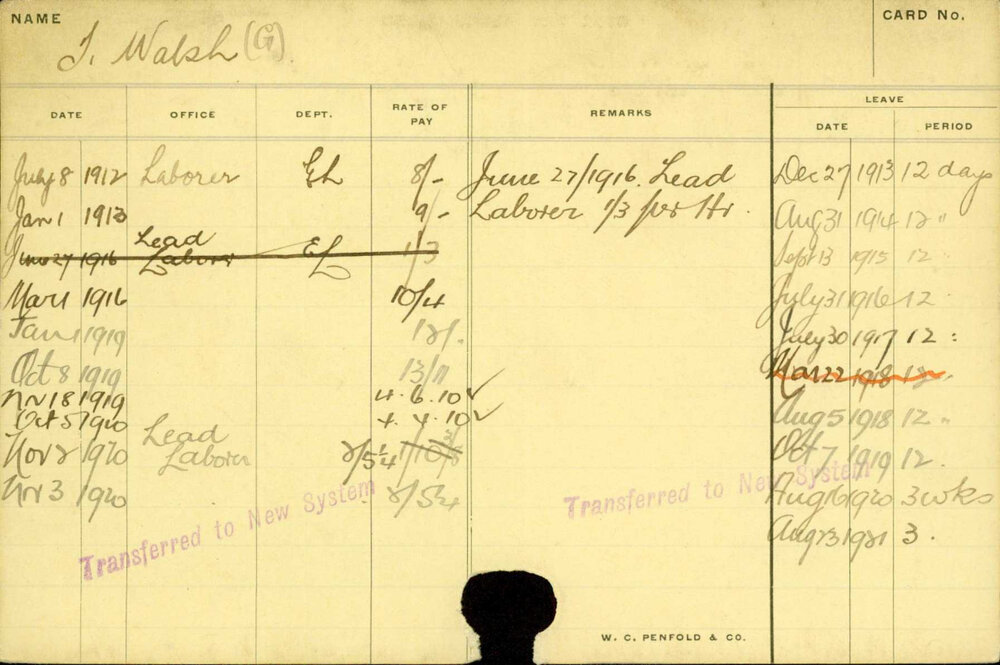 NAME
J. Walsh (G)
CARD No.
DATE OFFICE DEPT. RATE OF PAY REMARKS LEAVE
DATE PERIOD
July 8 1912 Laborer GL 8/- June 27/1916. Lead Dec 27 1913 12 days
Jan 1 1913 9/- Laborer 1/3 per Hr. Aug 31 1914 12 "
June 27 1916 Lead Laborer EL 1/3 Sept 13 1915 12
Mar 1 1916 10/4 July 31 1916 12
Jan 1 1919 12/- July 30 1917 12 :
Oct 8 1919 13/11 Mar 22 1918 12
Nv 18 1919 4.6.10 ✓
Oct 5 1920 4.4.10 ✓ Aug 5 1918 12 "
Nov 2 1920 Lead Laborer 2/5 1/4 Oct 7 1919 12.
Nv 3 1920 2/5 1/4 Aug 16 1920 3 wks
Aug 23 1921 3.
Transferred to New System
Transferred to New System
W. C. PENFOLD & CO.